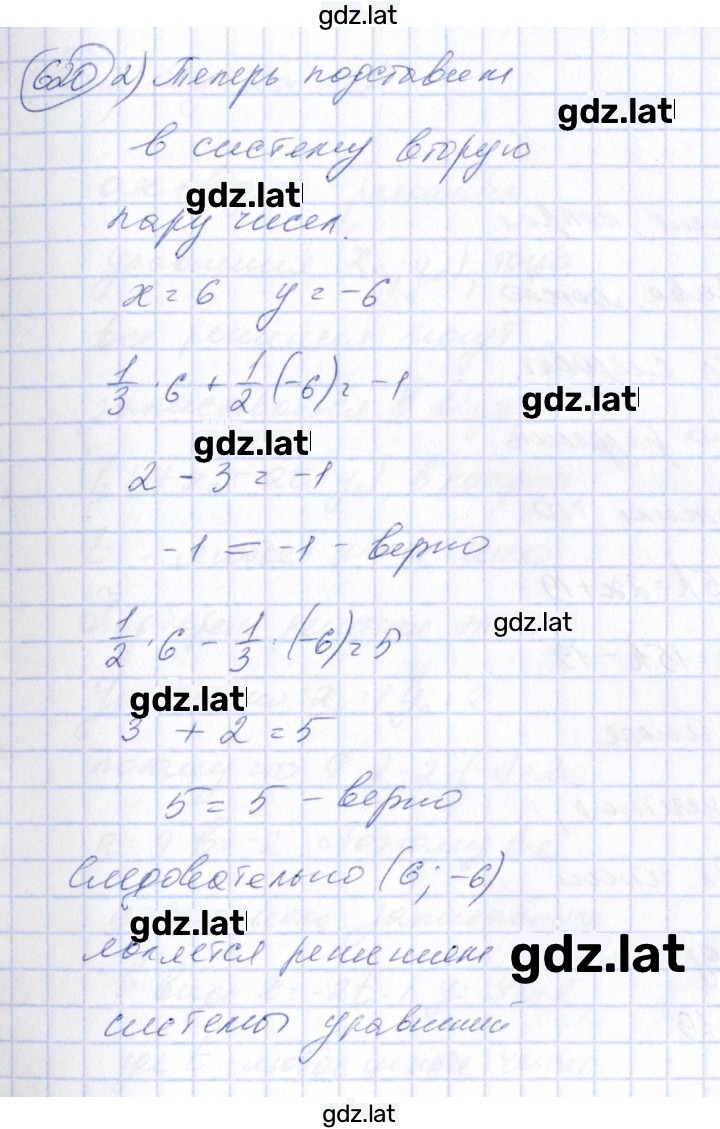 gdz.lat
620 2) Теперь подставим
gdz.lat
в систему вторую
gdz.lat
пару чисел.
x = 6 y = -6
1/3 · 6 + 1/2 (-6) = -1
gdz.lat
gdz.lat
2 - 3 = -1
-1 = -1 - верно
gdz.lat
1/2 · 6 - 1/3 · (-6) = 5
gdz.lat
3 + 2 = 5
5 = 5 - верно
Следовательно (6; -6)
gdz.lat
является решением
gdz.lat
системы уравнений
gdz.lat